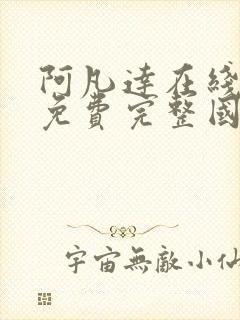 阿凡達在綫
免費完整國
宇宙無敵小仙